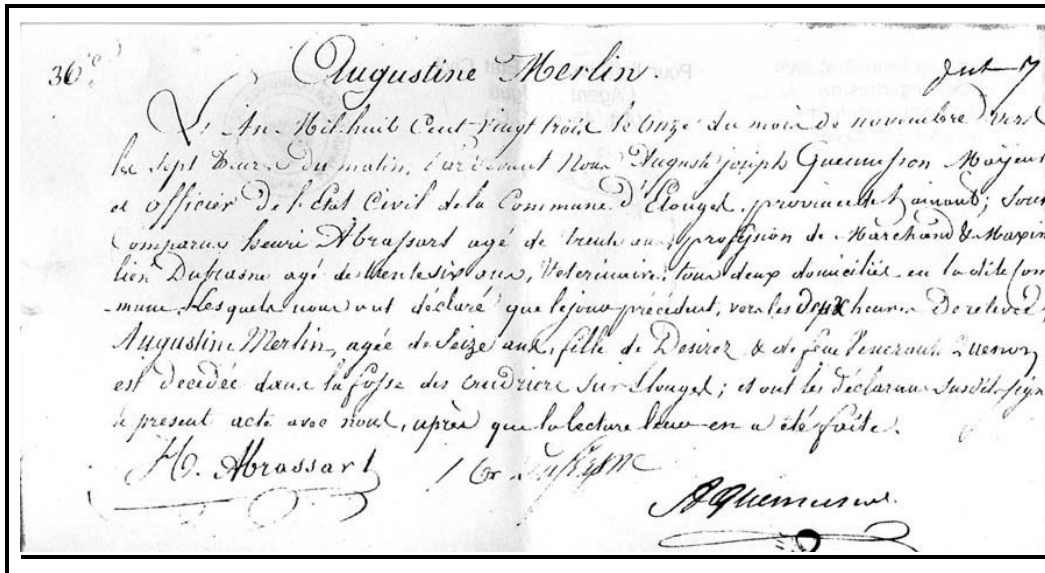 36e Augustine Merlin.
L'An Mil huit Cent vingt trois le onze du mois de novembre vers
les sept heures du matin, pardevant Nous Auguste joseph Mayeur
et officier de l'Etat Civil de la Commune d'Elouges, province de hainaut; sont
Comparus henri Abrassart agé de trente ans, profession de Marchand & Maximi
lien agé de trente six ans, Veterinaire; tous deux domiciliés en la dite Com
-mune. Lesquels nous ont déclaré que le jour précédent, vers les deux heures de relevée,
Augustine Merlin, agée de Seize ans, fille de Desirez & de feue Quenon
est decédée dans la fosse des sur Elouges; et ont les déclarans susdits signé
le present acte avec nous, après que la lecture leur en a été faite.
H. Abrassart